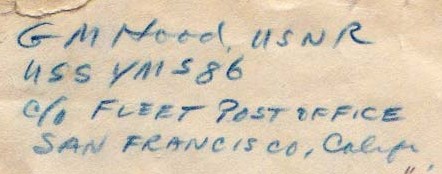 G M Hood, USNR
USS YMS 86
c/o FLEET POST OFFICE
SAN FRANCISCO, Calif.